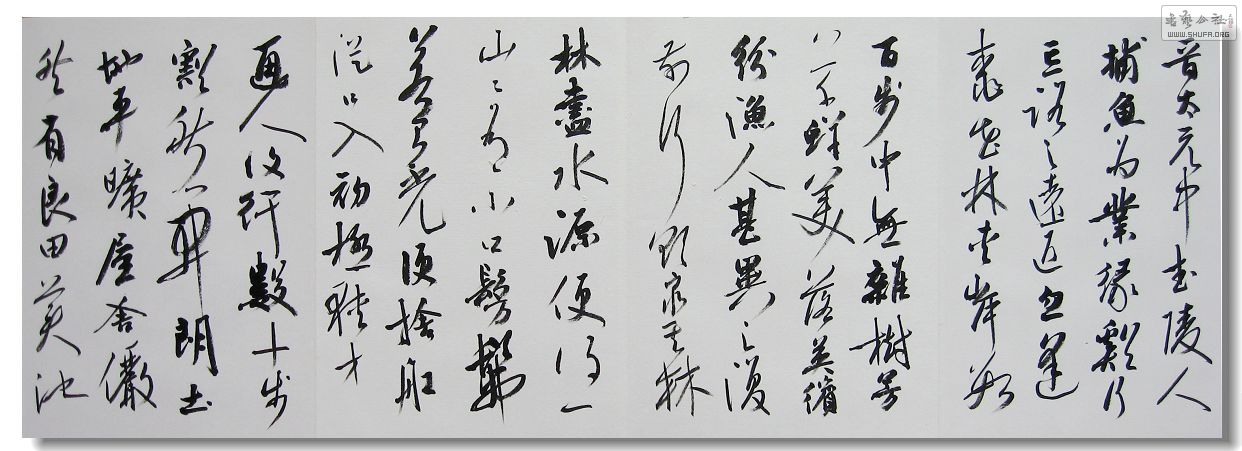 晉太元中武陵人
捕魚為業緣谿行
忘路之遠近忽逢
桃花林夾岸數
百步中無雜樹芳
草鮮美落英繽
紛漁人甚異之復
前行欲窮其林
林盡水源便得一
山〻有小口髣髴
若有光便捨船
從口入初極狹才
通人復行數十步
豁然開朗土
地平曠屋舍儼
然有良田美池
书艺公社
WWW.SHUFA.ORG